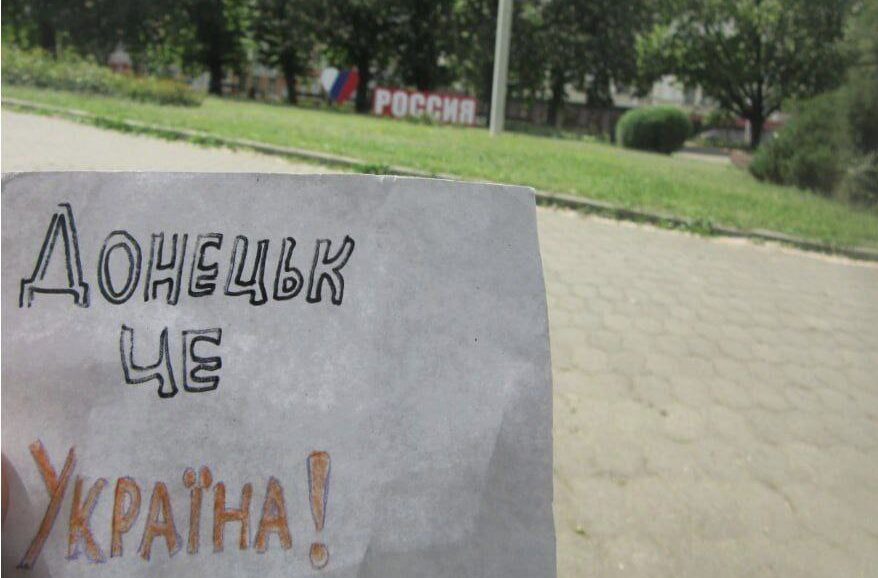 РОССИЯ
ДОНЕЦЬК
ЧЕ
УКРАЇНА!